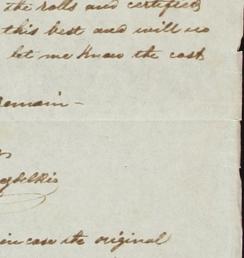 the rolls and certificts
this best and will no
let me know the cost
remain —
in case the original